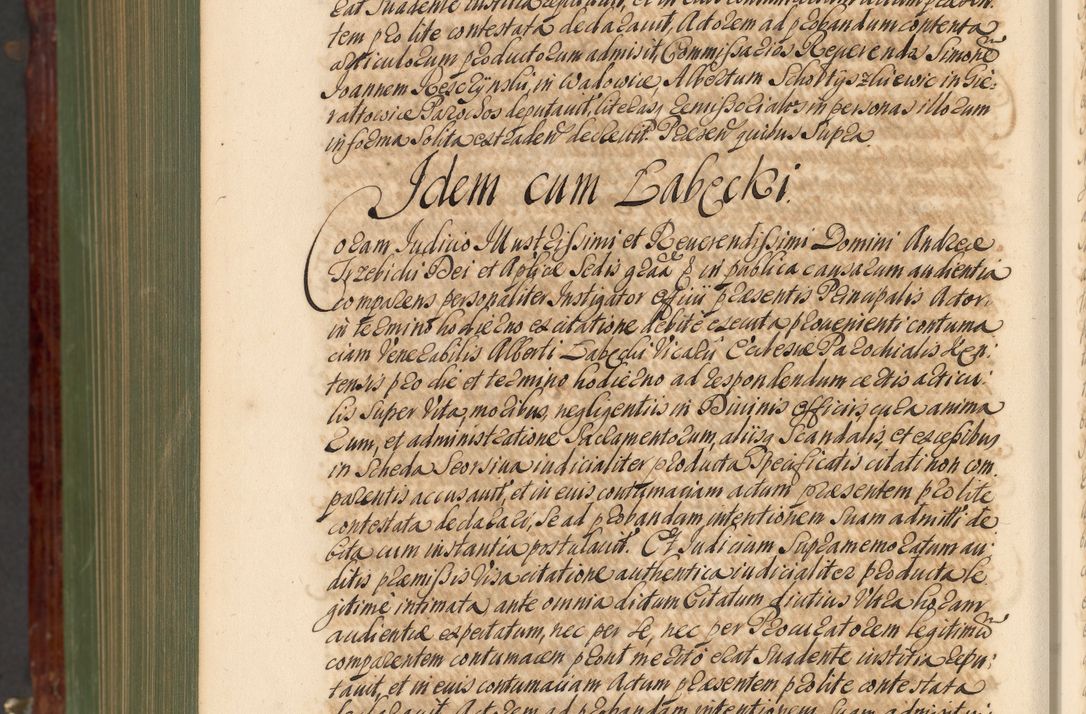 tem pro lite contestata declaravit, Actorem ad probandum contenta
articulorum productorum admisit, Commissarios Reverendos Simone
Joannem Reszczynski, in Wadowice, Albertum Scholtyszkiewic in Gie-
rattowice Parochos deputavit, literasq remissoriales in personas illorum
in forma solita extraden decrevit. Presen quibus supra.
Idem cum Labęcki.
Coram Judicio Illustrissimi et Reverendissimi Domini Andreæ
Trzebicki Dei et Aplicæ Sedis graa in publica causarum audientia
comparens personaliter Instigator officii præsentis Principalis Actor
in termino hodierno ex citatione debite executa provenienti contuma
ciam Venerabilis Alberti Labęcki Vicarii Ecclesiæ Parochialis Ken-
tensis pro die et termino hodierno ad respondendum certis articu-
lis super vita, moribus, negligentiis in Divinis officiis, cura anima
rum, et administratione Sacramentorum, aliisq scandalis, et excessibus
in Scheda Seorsiva iudicialiter producta specificatis citati non com-
parentis accusavit, et in eius contumaciam actum præsentem pro lite
contestata declarari, se ad probandam intentionem suam admitti de
bita cum instantia postulavit. Et Judicium supramemoratum au-
ditis præmissis visa citatione authentica iudicialiter producta le
gitime intimata ante omnia dictum Citatum diutius ultra horam
audientiæ expectatum, nec per se, nec per Procuratorem legitimu
comparentem contumacem prout merito erat suadente iustitia repu-
tavit, et in eius contumaciam Actum præsentem pro lite contestata
declaravit, Actorem ad probandam intentionem suam